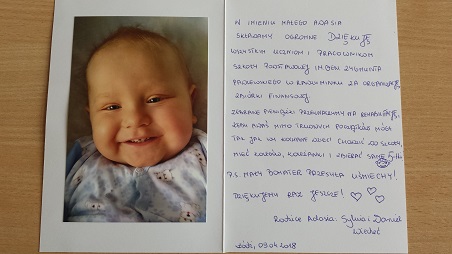 W IMIENIU MAŁEGO ADASIA
SKŁADAMY OGROMNE DZIĘKUJĘ
WSZYSTKIM UCZNIOM I PRACOWNIKOM
SZKOŁY PODSTAWOWEJ IMIENIA ZYGMUNTA
PADLEWSKIEGO W RADZIMINKU ZA ORGANIZACJĘ
ZBIÓRKI FINANSOWEJ
ZEBRANE PIENIĄDZE PRZEZNACZYMY NA REHABILITACJĘ,
ŻEBY ADAŚ MIMO TRUDNYCH POCZĄTKÓW MÓGŁ
TAK JAK WY KOCHANE DZIECI CHODZIĆ DO SZKOŁY,
MIEĆ KOLEGÓW, KOLEŻANKI I ZBIERAĆ SAME
P.S. MAŁY BOHATER PRZESYŁA UŚMIECHY!
DZIĘKUJEMY RAZ JESZCZE!
Rodzice Adasia: Sylwia i Daniel
Łódź, 09.04.2018